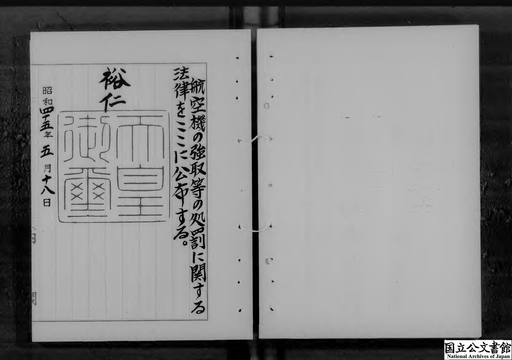 航空機の強取等の処罰に関する
法律をここに公布する。
裕仁
天皇
御璽
昭和四十五年五月十八日
内閣
国立公文書館
National Archives of Japan